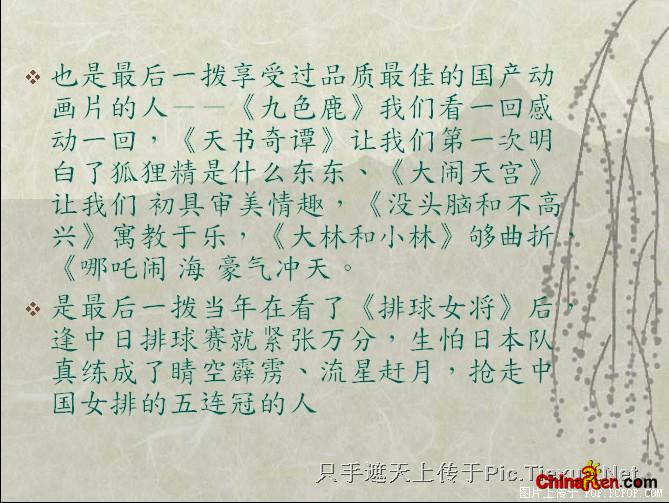 也是最后一拨享受过品质最佳的国产动
画片的人——《九色鹿》我们看一回感
动一回，《天书奇谭》让我们第一次明
白了狐狸精是什么东东、《大闹天宫》
让我们 初具审美情趣，《没头脑和不高
兴》寓教于乐，《大林和小林》够曲折，
《哪吒闹 海 豪气冲天。
是最后一拨当年在看了《排球女将》后，
逢中日排球赛就紧张万分，生怕日本队
真练成了晴空霹雳、流星赶月，抢走中
国女排的五连冠的人
只手遮天上传于Pic.Tiexue.Net
ChinaRen.com
图片上传于 TOP.PCPOP.COM